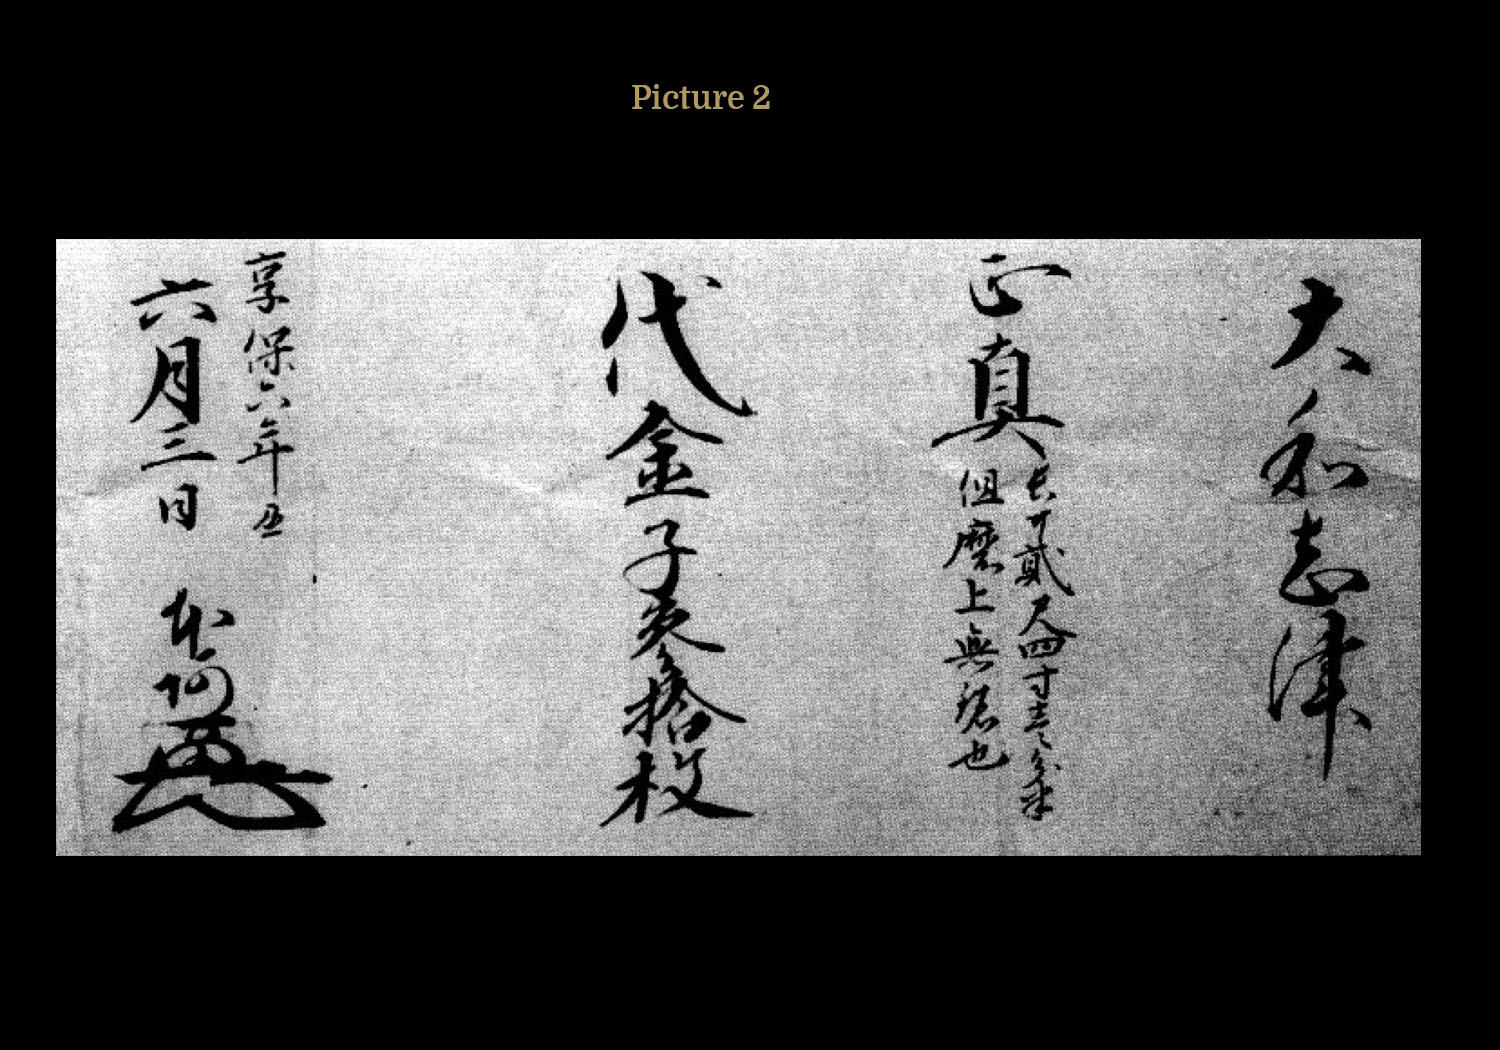 Picture 2
大和志津
正真
長サ貳尺四寸壹分半
但磨上無銘也
代金子参拾枚
享保六年丑
六月三日 本阿